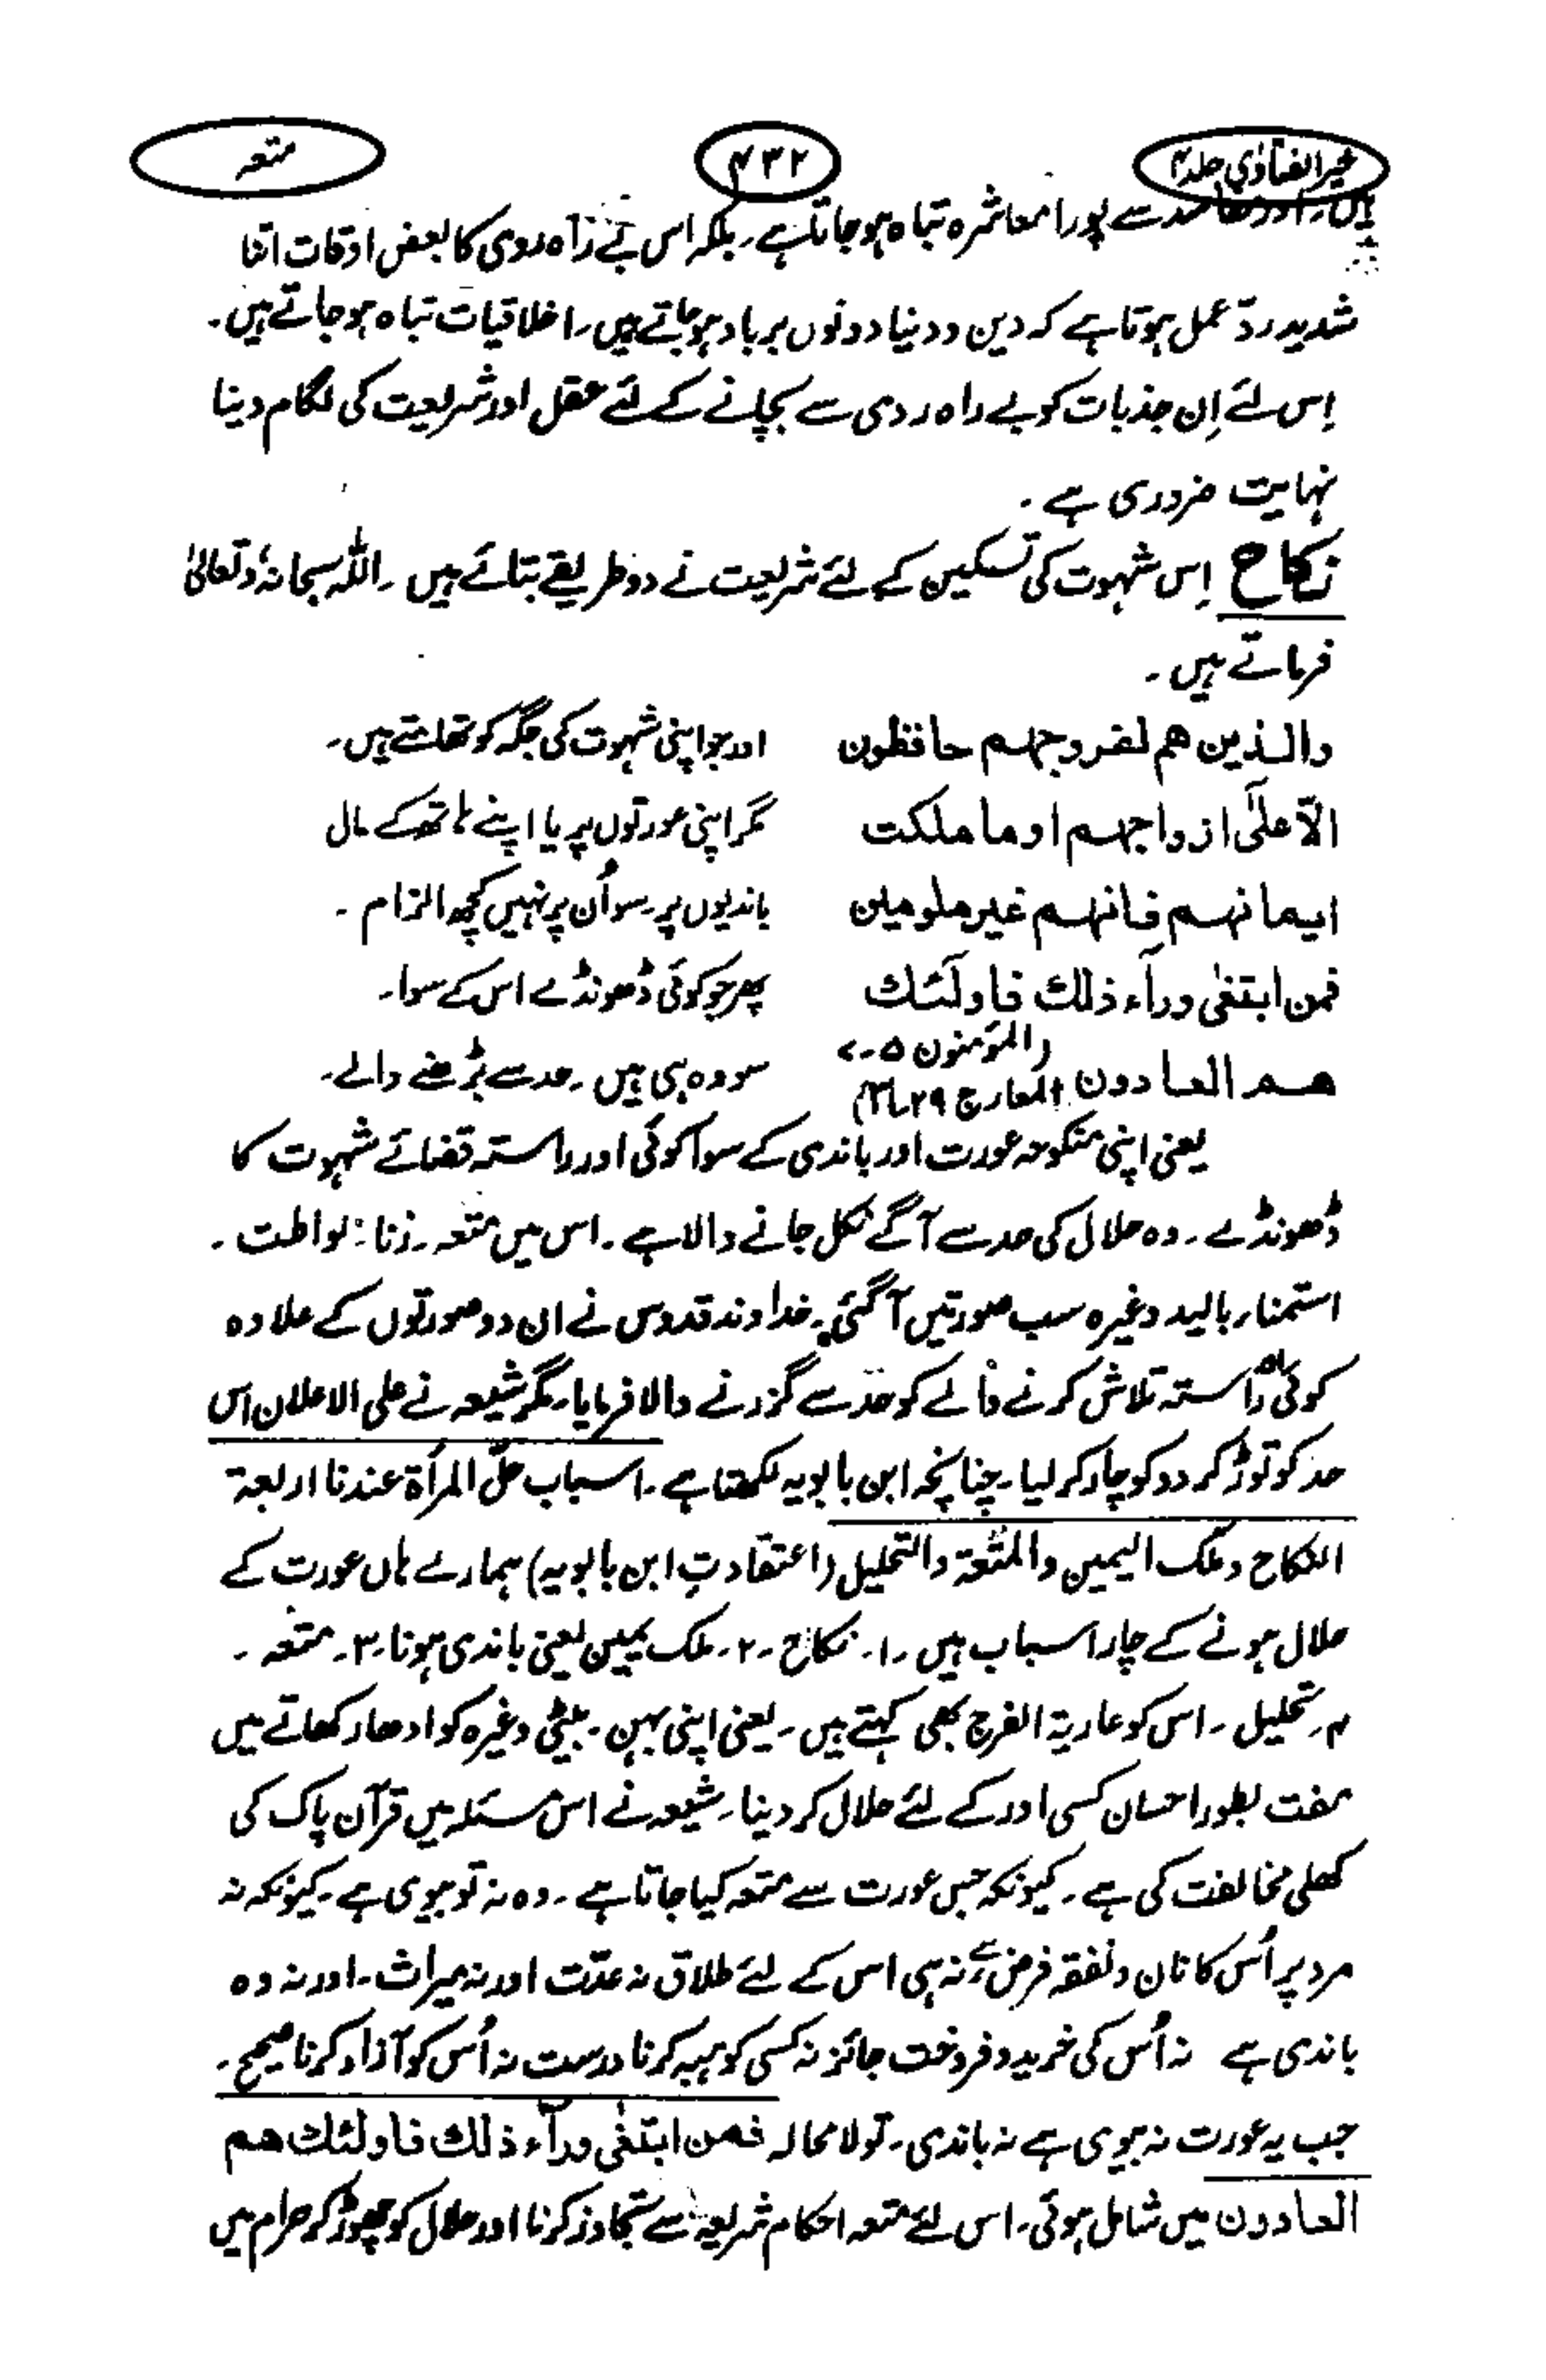 خیر الفتاوٰی جلد ۴
۴۳۲
متعہ
سے پورا معاشرہ تباہ ہو جاتا ہے۔ بلکہ اس بے راہ روی کا بعض اوقات اتنا
شدید ردّ عمل ہوتا ہے کہ دین و دنیا دونوں برباد ہو جاتے ہیں۔ اخلاقیات تباہ ہو جاتے ہیں۔
اِس لئے اِن جذبات کو بے راہ روی سے بچانے کے لئے عقل اور شریعت کی لگام دینا
نہایت ضروری ہے۔
نکاح اِس شہوت کی تسکین کے لئے شریعت نے دو طریقے بتائے ہیں۔ اللہ سبحانہٗ وتعالیٰ
فرماتے ہیں۔
والذین هم لفروجهم حافظون اور جو اپنی شہوت کی جگہ کو تھامتے ہیں۔
الّا علٰی ازواجهم او ما ملکت مگر اپنی عورتوں پر یا اپنے ہاتھ کے مال
ایمانهم فانهم غیر ملومین باندیوں پر۔ سو اُن پر نہیں کچھ الزام۔
فمن ابتغٰی ورآء ذلك فاولٓئك پھر جو کوئی ڈھونڈے اس کے سوا۔
هم العادون (المؤمنون ۵-۷ المعارج ۲۹-۳۱) سو وہ ہی ہیں۔ حد سے بڑھنے والے۔
یعنی اپنی منکوحہ عورت اور باندی کے سوا کوئی اور راستہ قضائے شہوت کا
ڈھونڈے۔ وہ حلال کی حد سے آگے نکل جانے والا ہے۔ اس میں متعہ۔ زنا۔ لواطت۔
استمناء بالید وغیرہ سب صورتیں آگئی۔ خداوند قدوس نے ان دو صورتوں کے علاوہ
کوئی راستہ تلاش کرنے والے کو حد سے گزرنے والا فرمایا۔ مگر شیعہ نے علی الاعلان اس
حد کو توڑ کر دو کو چار کر لیا۔ چنانچہ ابن بابویہ لکھتا ہے۔ اسباب حلّ المرأة عندنا اربعة
النکاح وملک الیمین والمتعة والتحلیل (اعتقادتِ ابن بابویہ) ہمارے ہاں عورت کے
حلال ہونے کے چار اسباب ہیں۔ ۱۔ نکاح۔ ۲۔ ملک یمین یعنی باندی ہونا۔ ۳۔ متعہ۔
۴۔ تحلیل۔ اس کو عاریة الفرج بھی کہتے ہیں۔ یعنی اپنی بہن۔ بیٹی وغیرہ کو ادھار کھاتے میں
مفت بطور احسان کسی اور کے لئے حلال کر دینا۔ شیعہ نے اس مسئلہ میں قرآن پاک کی
کھلی مخالفت کی ہے۔ کیونکہ جس عورت سے متعہ کیا جاتا ہے۔ وہ نہ تو بیوی ہے۔ کیونکہ نہ
مرد پر اُس کا نان و نفقہ فرض ہے نہ ہی اس کے لئے طلاق نہ عدّت اور نہ میراث۔ اور نہ وہ
باندی ہے نہ اُس کی خرید و فروخت جائز نہ کسی کو ہبہ کرنا درست نہ اُس کو آزاد کرنا صحیح۔
جب یہ عورت نہ بیوی ہے نہ باندی۔ تو لا محالہ فمن ابتغٰی ورآء ذلك فاولئك هم
العادون میں شامل ہوئی۔ اس لئے متعہ احکام شریعہ سے تجاوز کرنا اور حلال کو چھوڑ کر حرام میں